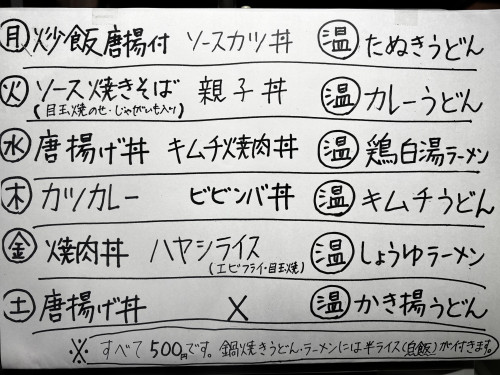 月 炒飯唐揚付 ソースカツ丼 温 たぬきうどん
火 ソース焼きそば 親子丼 温 カレーうどん
(目玉焼のせ・じゃがいも入り)
水 唐揚げ丼 キムチ焼肉丼 温 鶏白湯ラーメン
木 カツカレー ビビンバ丼 温 キムチうどん
金 焼肉丼 ハヤシライス 温 しょうゆラーメン
(エビフライ・目玉焼)
土 唐揚げ丼 × 温 かき揚うどん
※ すべて500円です。鍋焼きうどん・ラーメンには半ライス(白飯)が付きます。